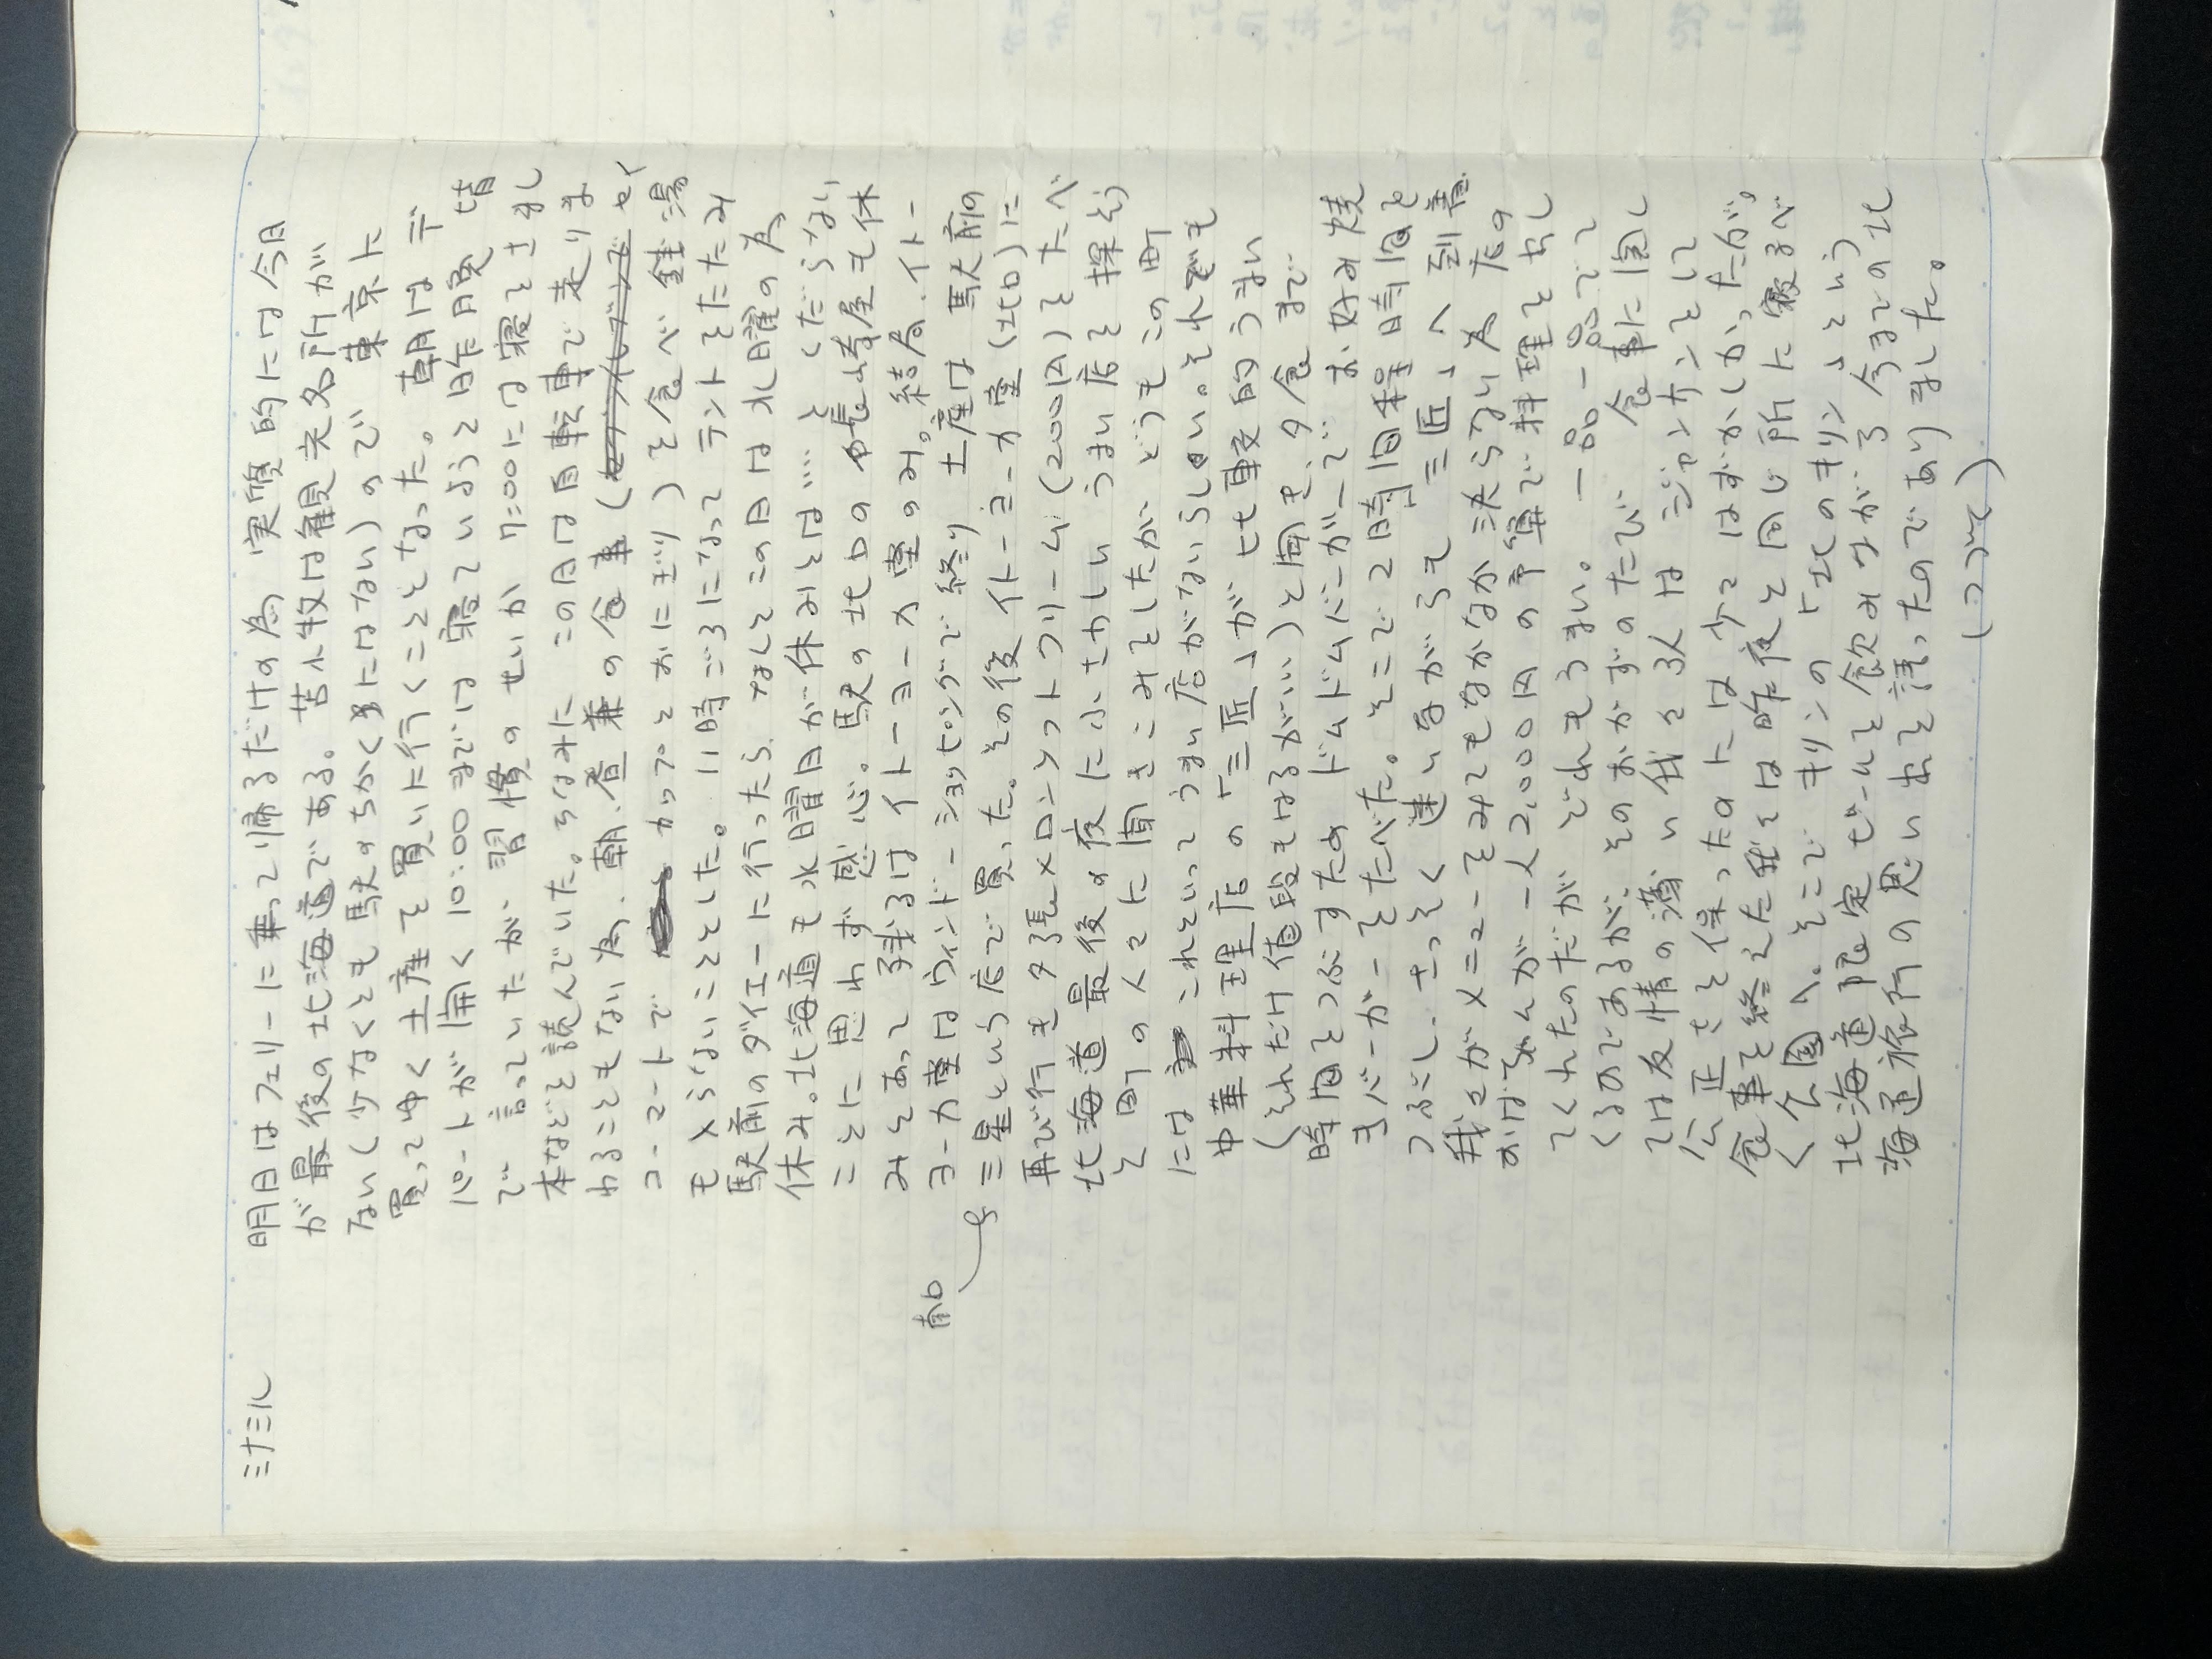 ミナミル
明日はフェリーに乗って帰るだけの為 実質的には今日
が最後の北海道である。苫小牧は観光名所が
ない(少なくとも駅のちかくにはない)ので 東京に
買ってゆく土産を買いに行くこととなった。朝はデ
パートが開く10:00までは寝ていようと昨晩 皆
で 言っていたが 習慣のせいか 7:00には寝とさまし
本などを読んでいた。ちなみに この日は自転車で走りま
わることもない為、朝、昼兼の食事(せく
コーマートで カップとおにぎり)を食べ 銭湯
も入らないこととした。11時ごろになって テントをたたみ
駅前のダイエーに行ったら、なんとこの日は水曜の為
休み。北海道も水曜日が休みとは…と くだらない
ことに思わず感心。駅の北口の長崎屋も休
みとあって 残るはイトーヨーカ堂のみ。結局、イトー
ヨーカ堂はウィンドーショッピングで終り 土産は 駅前の
南口
三星という店で買った。その後 イトーヨーカ堂(北口)に
再び行き夕張メロンソフトクリーム(200円)をたべ
北海道最後の夜にふさわしい うまい店を探そう
と町の人々に聞きこみをしたが どうもこの町
には これといってうまい店がないらしい。それでも
中華料理店の「三匠」が比較的うまい
(それだけ値段もはるが…)と聞き、夕食まで
時間をつぶすため ドムドムバーガーで お好み焼
きバーガーをたべた。そこで2時間程時間を
つぶし、さっそく迷いながらも「三匠」へ到着。
我々がメニューをみてもなかなか決らない為 店の
おばちゃんが一人2,000円の予算で料理を出し
てくれたのだが どれもうまい。一品一品でて
くるのであるが、そのおかずのたび 食事に関し
ては友情の薄い我々3人は ジャンケンをして
公正さを保ったのには 少々はずかしかったが。
食事を終えた我々は昨夜と同じ所に寝るべ
く公園へ。そこで キリンの「北のキリン」という
北海道限定ビールを飲みながら今までの北
海道旅行の思い出を語ったのでありました。
(つづく)